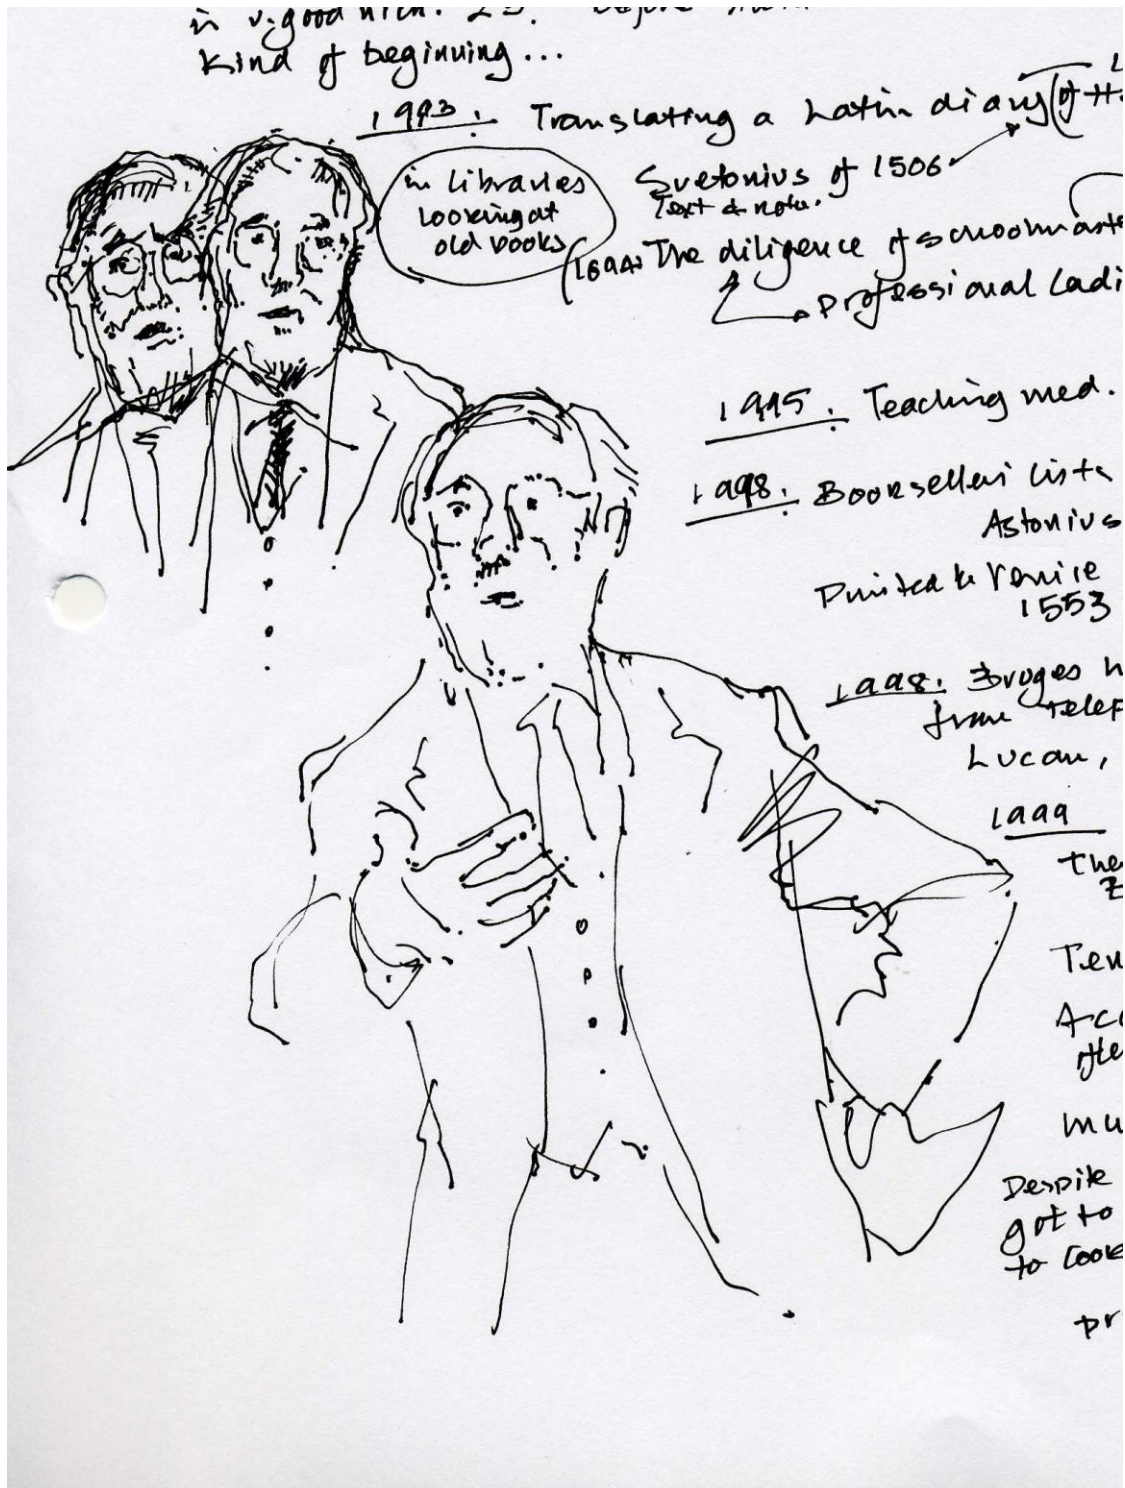 in v. good
Kind of beginning...
1993. Translating a Latin diary (of
in Libraries
looking at
old books
Suetonius of 1506
Text & note.
1994. The diligence of schoolmaste
Professional Ladi
1995. Teaching med.
1998. Booksellers lists
Astonius
Printed to Venice
1553
1998. Bruges
from Telep
Lucan,
1999
the
Ten
Acc
mu
Despite
got to
to Cook
pr